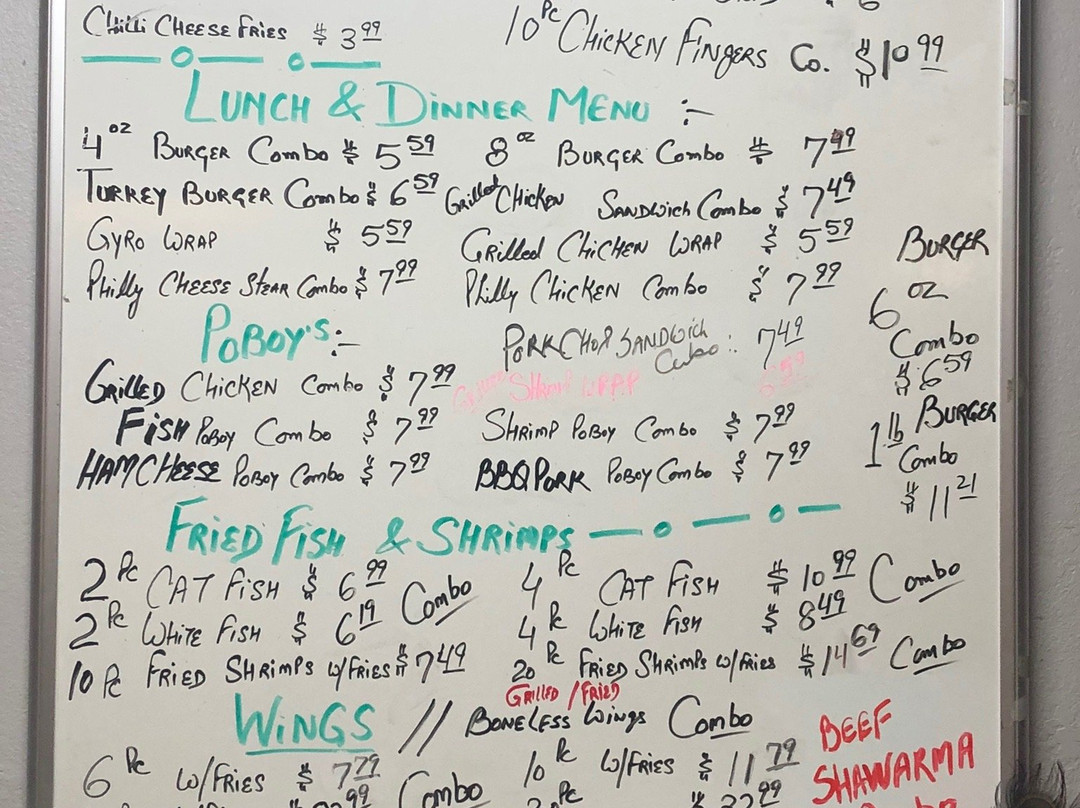 Chilli Cheese Fries $3.99
10 Pc Chicken Fingers Co. $10.99
Lunch & Dinner Menu :-
4 oz Burger Combo $5.59
8 oz Burger Combo $7.99
Turkey Burger Combo $6.59
Grilled Chicken Sandwich Combo $7.49
Gyro Wrap $5.59
Grilled Chicken Wrap $5.59
Philly Cheese Steak Combo $7.99
Philly Chicken Combo $7.99
Burger
6 oz
Combo
$6.59
Poboy's :-
Pork Chop Sandwich
Combo : 7.49
Grilled Chicken Combo $7.99
Shrimp Wrap 6.59
Fish Poboy Combo $7.99
Shrimp Poboy Combo $7.99
Ham Cheese Poboy Combo $7.99
BBQ Pork Poboy Combo $7.99
1 lb Burger
Combo
$11.21
Fried Fish & Shrimps
2 Pc Cat Fish $6.99 Combo
4 Pc Cat Fish $10.99 Combo
2 Pc White Fish $6.19
4 Pc White Fish $8.49
10 Pc Fried Shrimps w/Fries $7.49
20 Pc Fried Shrimps w/Fries $14.69 Combo
Grilled / Fried
Wings // Boneless Wings Combo
6 Pc w/Fries $7.79 Combo
10 Pc w/Fries $11.79
Beef
Shawarma